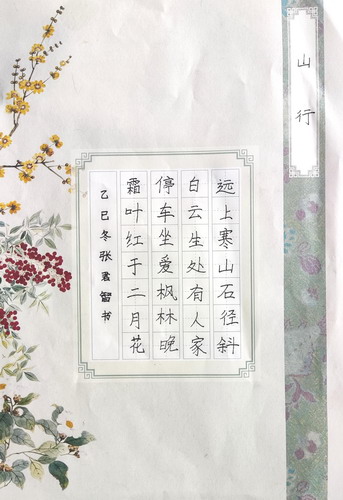 山行
远上寒山石径斜
白云生处有人家
停车坐爱枫林晚
霜叶红于二月花
乙巳冬张君留书